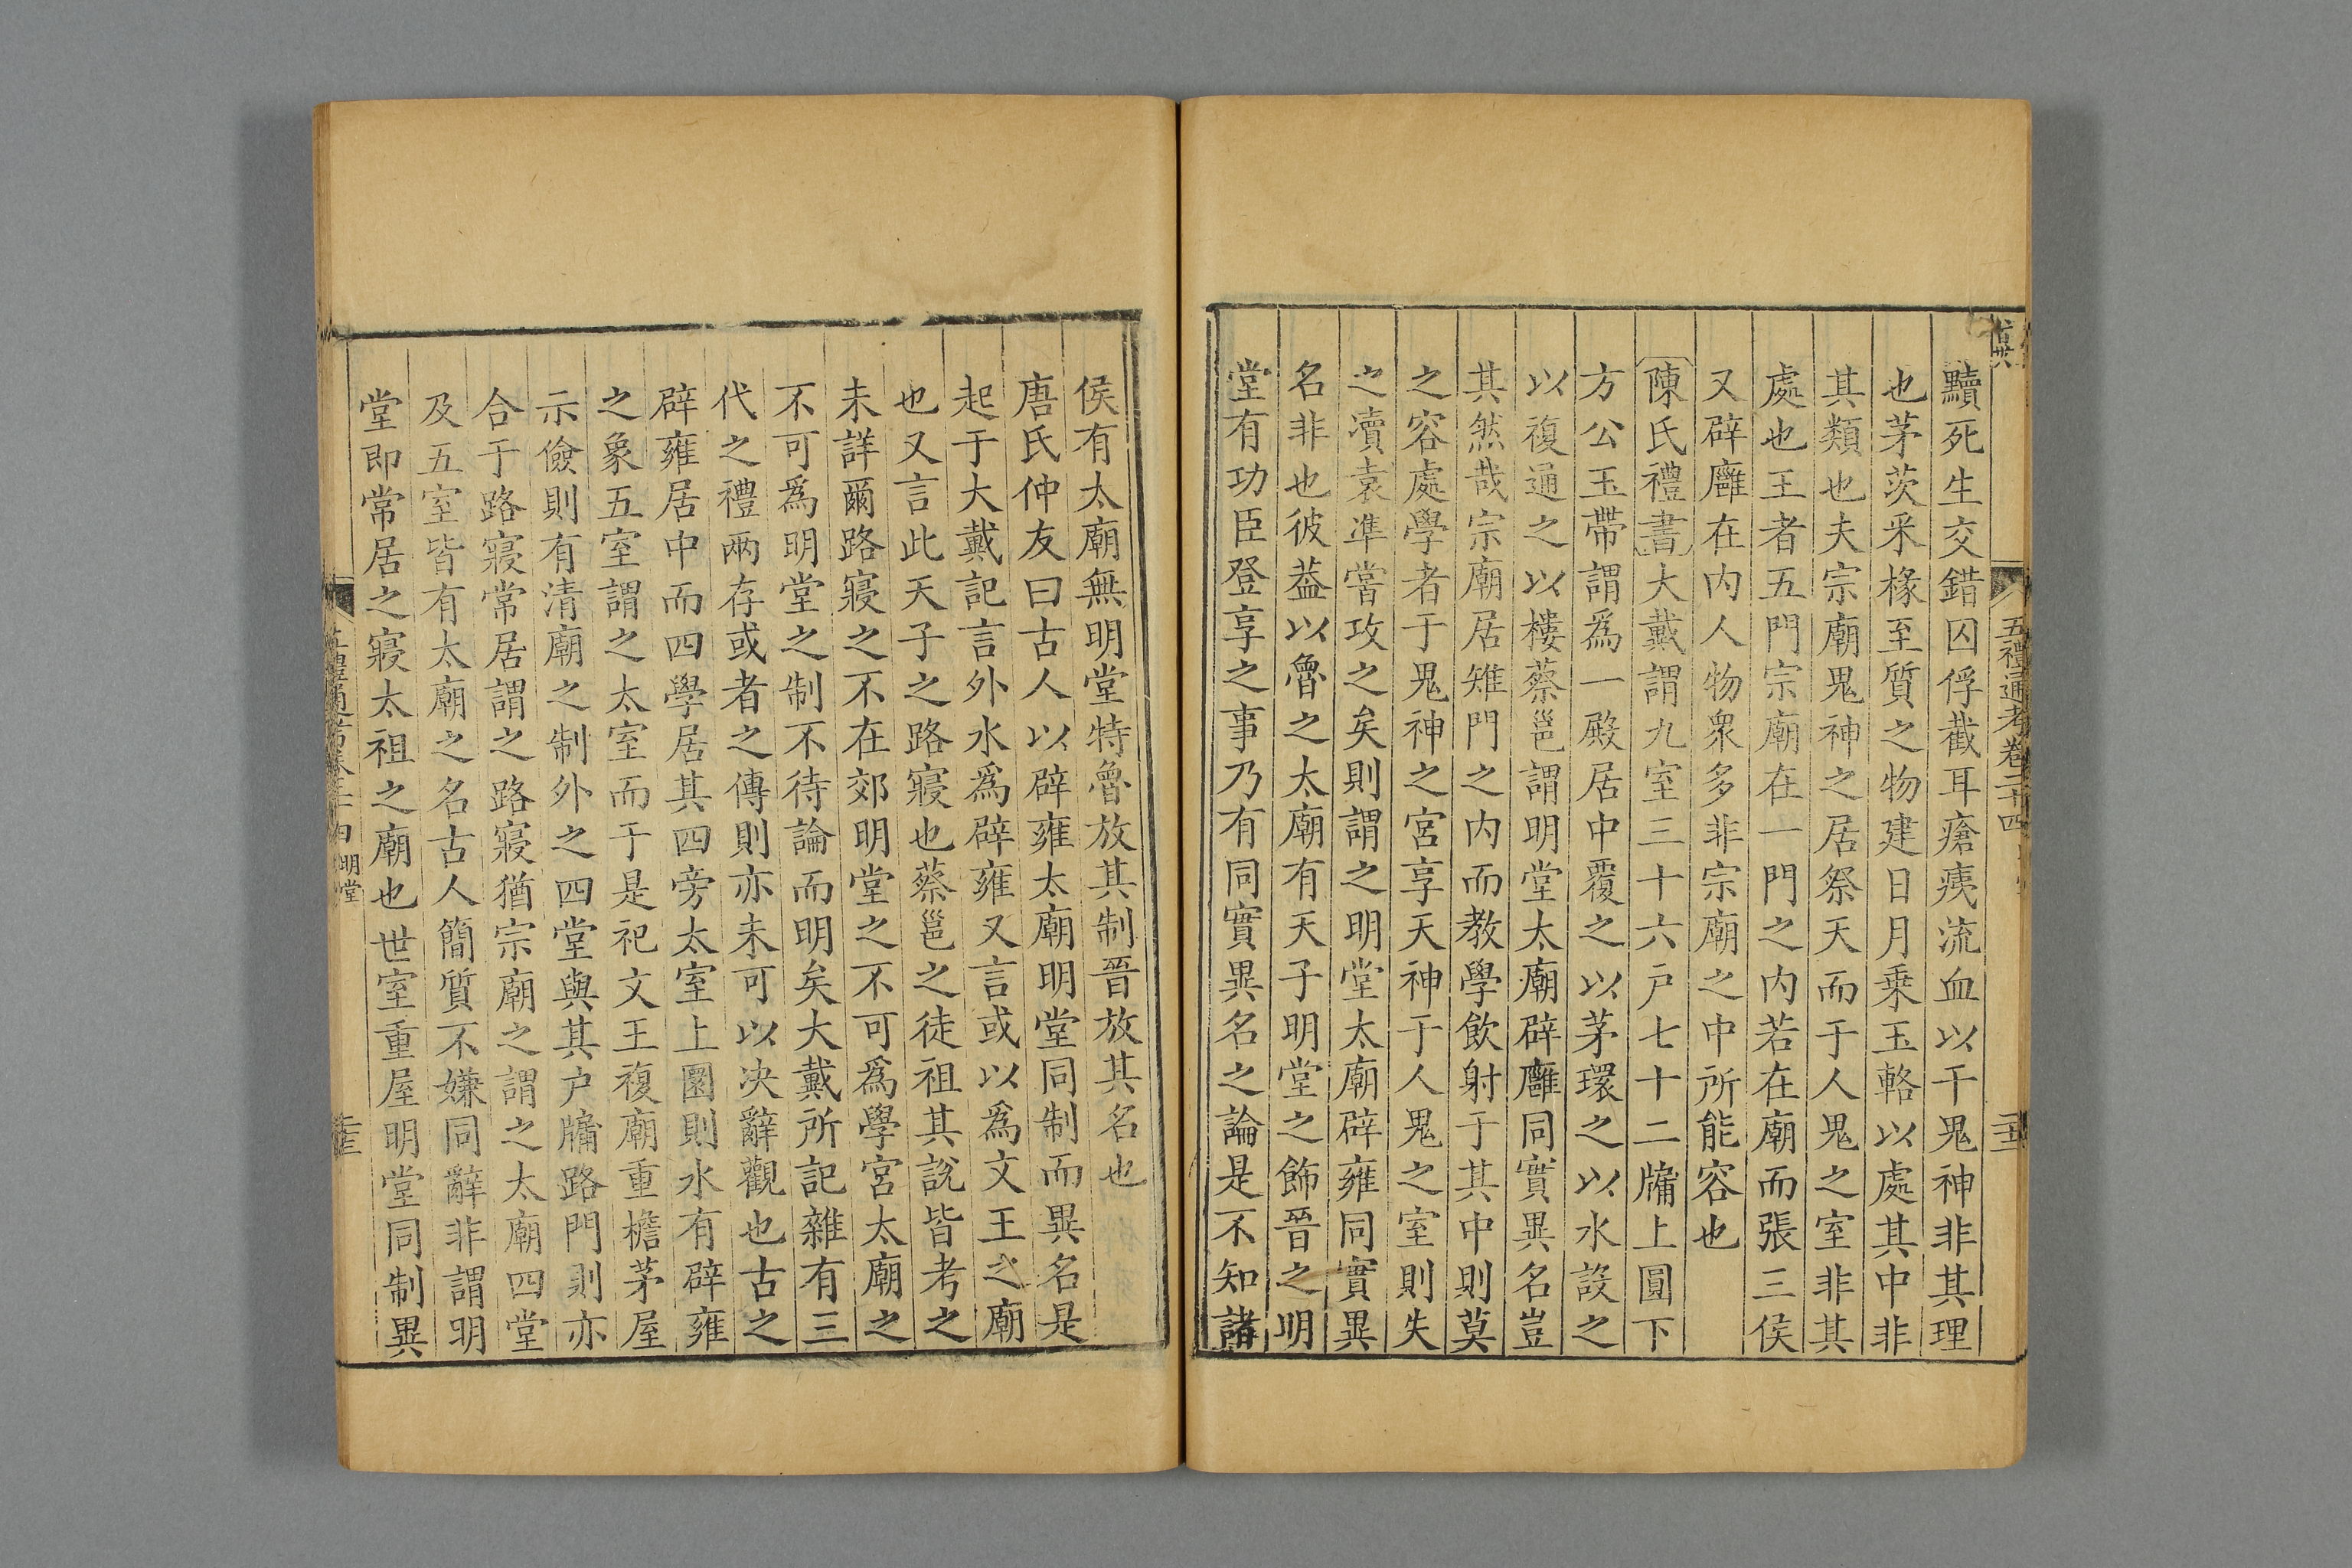 黷死生交錯囚俘截耳瘡痍流血以干鬼神非其理
也茅茨釆椽至質之物建日月乘玉輅以處其中非
其類也夫宗廟鬼神之居祭天而于人鬼之室非其
處也王者五門宗廟在一門之内若在廟而張三侯
又辟廱在内人物衆多非宗廟之中所能容也
陳氏禮書大戴謂九室三十六户七十二牖上圓下
方公玉帶謂爲一殿居中覆之以茅環之以水設之
以複通之以樓蔡邕謂明堂太廟辟廱同實異名豈
其然哉宗廟居雉門之内而教學飲射于其中則莫
之容處學者于鬼神之宮享天神于人鬼之室則失
之瀆袁準嘗攻之矣則謂之明堂太廟辟雍同實異
名非也彼葢以魯之太廟有天子明堂之飾晉之明
堂有功臣登享之事乃有同實異名之論是不知諸
五禮通考卷二十四
侯有太廟無明堂特魯放其制晉放其名也
唐氏仲友曰古人以辟雍太廟明堂同制而異名是
起于大戴記言外水爲辟雍又言或以爲文王之廟
也又言此天子之路寢也蔡邕之徒祖其説皆考之
未詳爾路寢之不在郊明堂之不可爲學宮太廟之
不可爲明堂之制不待論而明矣大戴所記雜有三
代之禮兩存或者之傳則亦未可以决辭觀也古之
辟雍居中而四學居其四旁太室上圜則水有辟雍
之象五室謂之太室而于是祀文王複廟重檐茅屋
示儉則有清廟之制外之四堂與其户牖路門則亦
合于路寢常居謂之路寢猶宗廟之謂之太廟四堂
及五室皆有太廟之名古人簡質不嫌同辭非謂明
堂即常居之寢太祖之廟也世室重屋明堂同制異
明堂